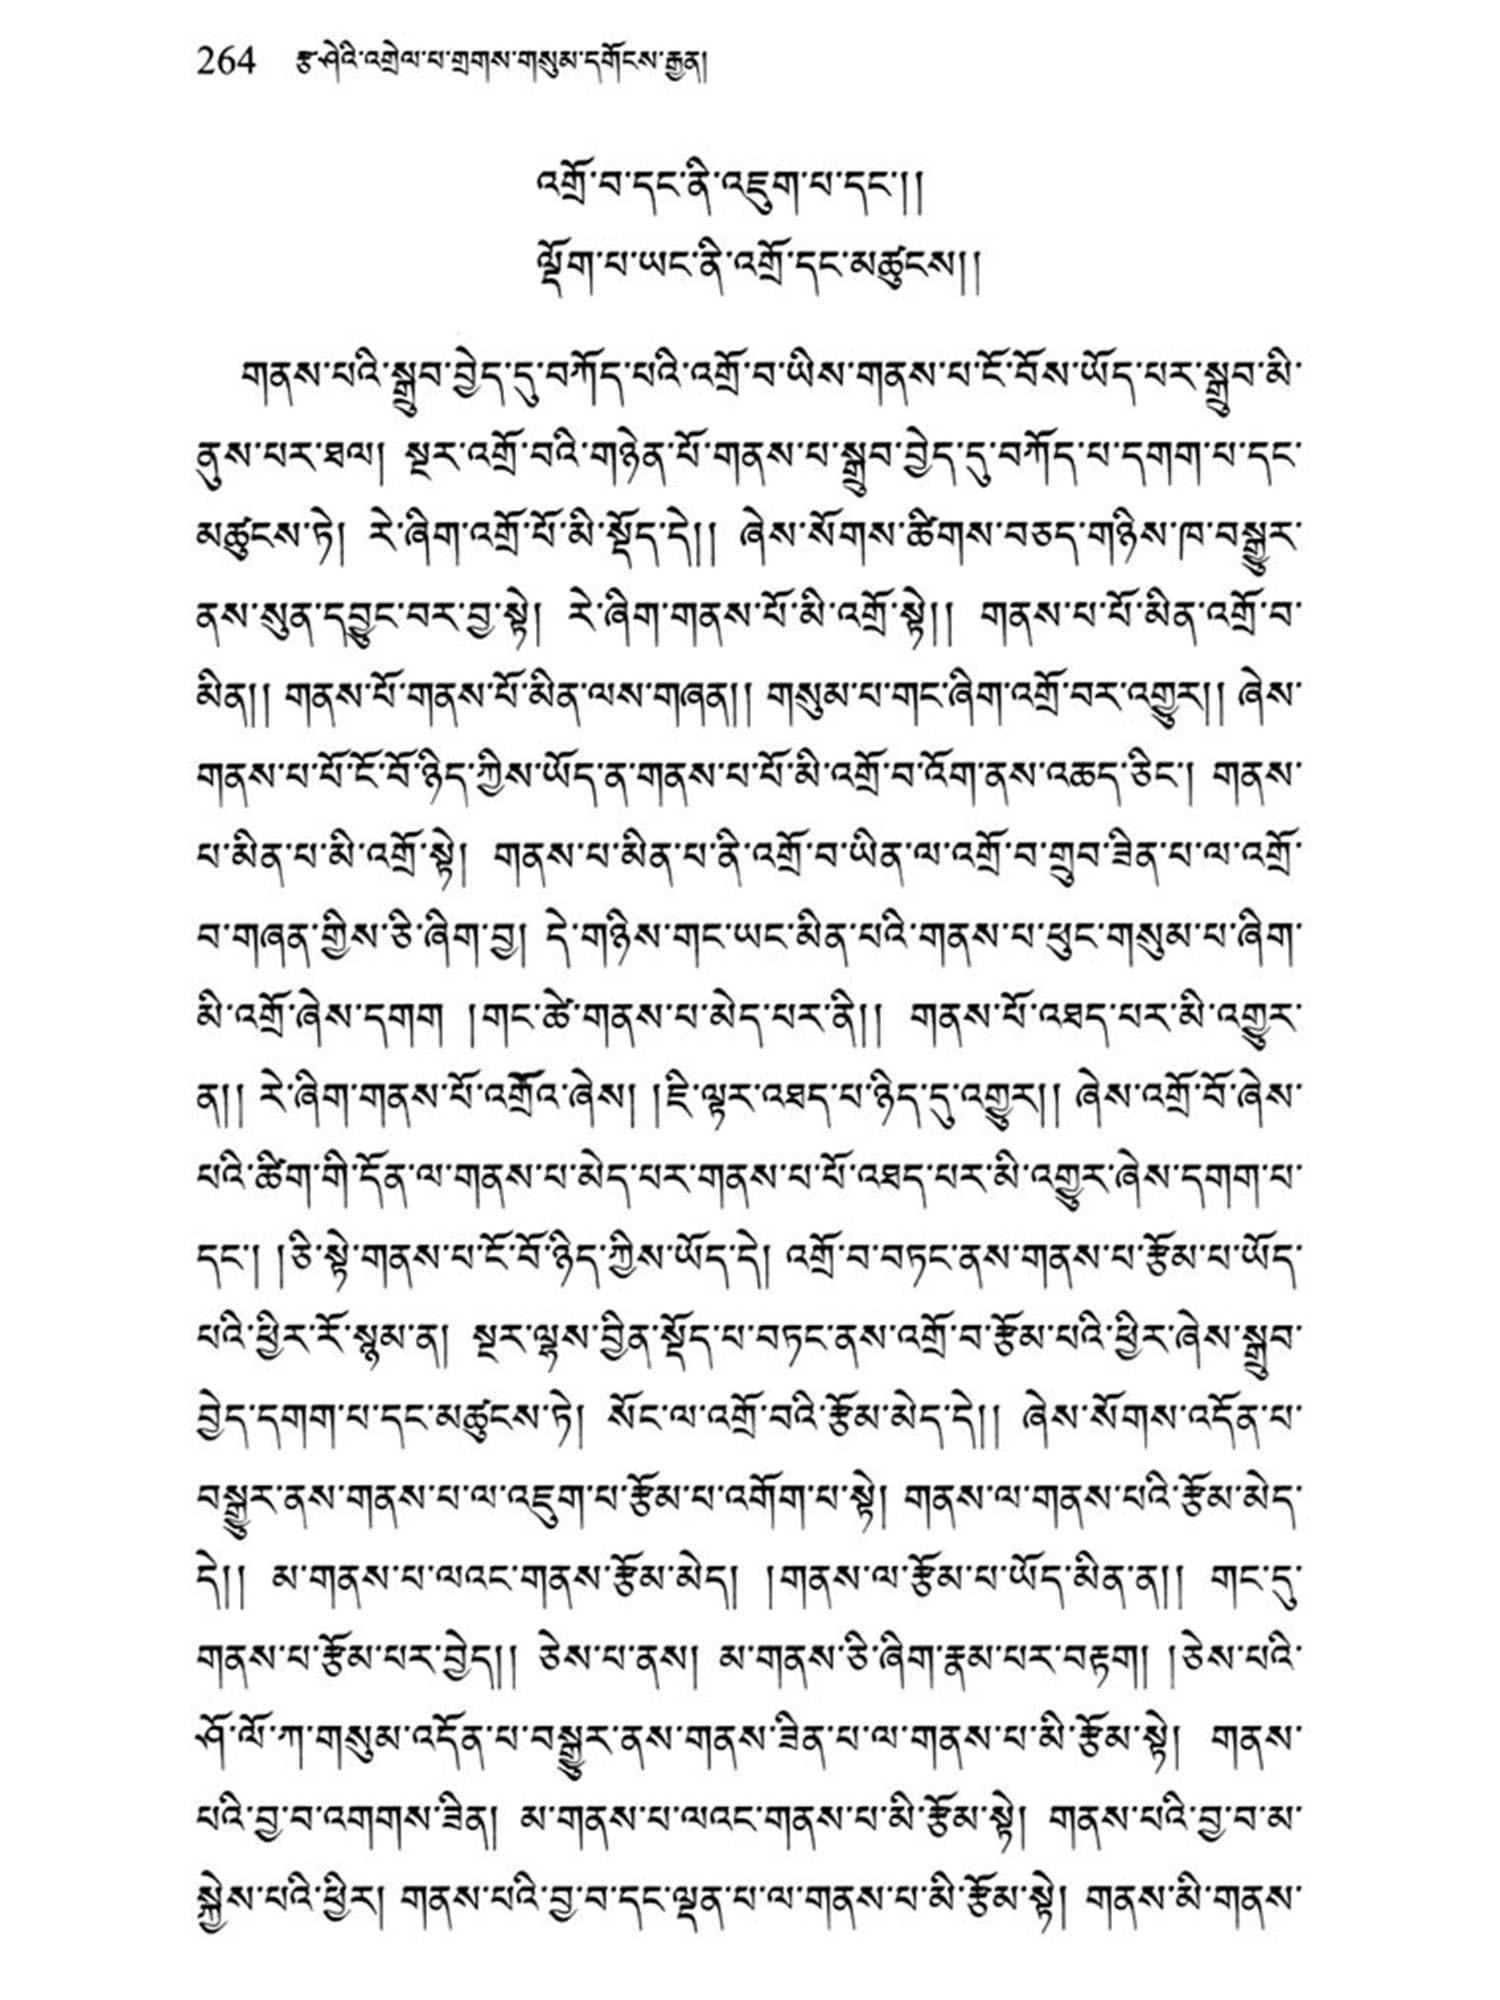 264 རྩ་ཤེའི་འགྲེལ་པ་གྲགས་གསུམ་དགོངས་རྒྱན།
འགྲོ་བ་དང་ནི་འཇུག་པ་དང་།།
ལྡོག་པ་ཡང་ནི་འགྲོ་དང་མཚུངས།།
གནས་པའི་སྒྲུབ་བྱེད་དུ་བཀོད་པའི་འགྲོ་བ་ཡིས་གནས་པ་ངོ་བོས་ཡོད་པར་སྒྲུབ་མི་
ནུས་པར་ཐལ། སྔར་འགྲོ་བའི་གཉེན་པོ་གནས་པ་སྒྲུབ་བྱེད་དུ་བཀོད་པ་དགག་པ་དང་
མཚུངས་ཏེ། རེ་ཞིག་འགྲོ་པོ་མི་སྡོད་དེ།། ཞེས་སོགས་ཚིགས་བཅད་གཉིས་ཁ་བསྒྱུར་
ནས་སུན་དབྱུང་བར་བྱ་སྟེ། རེ་ཞིག་གནས་པོ་མི་འགྲོ་སྟེ།། གནས་པ་པོ་མིན་འགྲོ་བ་
མིན།། གནས་པོ་གནས་པོ་མིན་ལས་གཞན།། གསུམ་པ་གང་ཞིག་འགྲོ་བར་འགྱུར།། ཞེས་
གནས་པ་པོ་ངོ་བོ་ཉིད་ཀྱིས་ཡོད་ན་གནས་པ་པོ་མི་འགྲོ་བ་འོག་ནས་འཆད་ཅིང་། གནས་
པ་མིན་པ་མི་འགྲོ་སྟེ། གནས་པ་མིན་པ་ནི་འགྲོ་བ་ཡིན་ལ་འགྲོ་བ་གྲུབ་ཟིན་པ་ལ་འགྲོ་
བ་གཞན་གྱིས་ཅི་ཞིག་བྱ། དེ་གཉིས་གང་ཡང་མིན་པའི་གནས་པ་ཕུང་གསུམ་པ་ཞིག་
མི་འགྲོ་ཞེས་དགག །གང་ཚེ་གནས་པ་མེད་པར་ནི།། གནས་པོ་འཐད་པར་མི་འགྱུར་
ན།། རེ་ཞིག་གནས་པོ་འགྲོའོ་ཞེས། །ཇི་ལྟར་འཐད་པ་ཉིད་དུ་འགྱུར།། ཞེས་འགྲོ་བོ་ཞེས་
པའི་ཚིག་གི་དོན་ལ་གནས་པ་མེད་པར་གནས་པ་པོ་འཐད་པར་མི་འགྱུར་ཞེས་དགག་པ་
དང་། །ཅི་སྟེ་གནས་པ་ངོ་བོ་ཉིད་ཀྱིས་ཡོད་དེ། འགྲོ་བ་བཏང་ནས་གནས་པ་རྩོམ་པ་ཡོད་
པའི་ཕྱིར་རོ་སྙམ་ན། སྔར་ལྷས་བྱིན་སྡོད་པ་བཏང་ནས་འགྲོ་བ་རྩོམ་པའི་ཕྱིར་ཞེས་སྒྲུབ་
བྱེད་དགག་པ་དང་མཚུངས་ཏེ། སོང་ལ་འགྲོ་བའི་རྩོམ་མེད་དེ།། ཞེས་སོགས་འདོན་པ་
བསྒྱུར་ནས་གནས་པ་ལ་འཇུག་པ་རྩོམ་པ་འགོག་པ་སྟེ། གནས་ལ་གནས་པའི་རྩོམ་མེད་
དེ།། མ་གནས་པ་ལའང་གནས་རྩོམ་མེད། །གནས་ལ་རྩོམ་པ་ཡོད་མིན་ན།། གང་དུ་
གནས་པ་རྩོམ་པར་བྱེད།། ཅེས་པ་ནས། མ་གནས་ཅི་ཞིག་རྣམ་པར་བརྟག། །ཅེས་པའི་
ཤོ་ལོ་ཀ་གསུམ་འདོན་པ་བསྒྱུར་ནས་གནས་ཟིན་པ་ལ་གནས་པ་མི་རྩོམ་སྟེ། གནས་
པའི་བྱ་བ་འགགས་ཟིན། མ་གནས་པ་ལའང་གནས་པ་མི་རྩོམ་སྟེ། གནས་པའི་བྱ་བ་མ་
སྐྱེས་པའི་ཕྱིར། གནས་པའི་བྱ་བ་དང་ལྡན་པ་ལ་གནས་པ་མི་རྩོམ་སྟེ། གནས་མི་གནས་